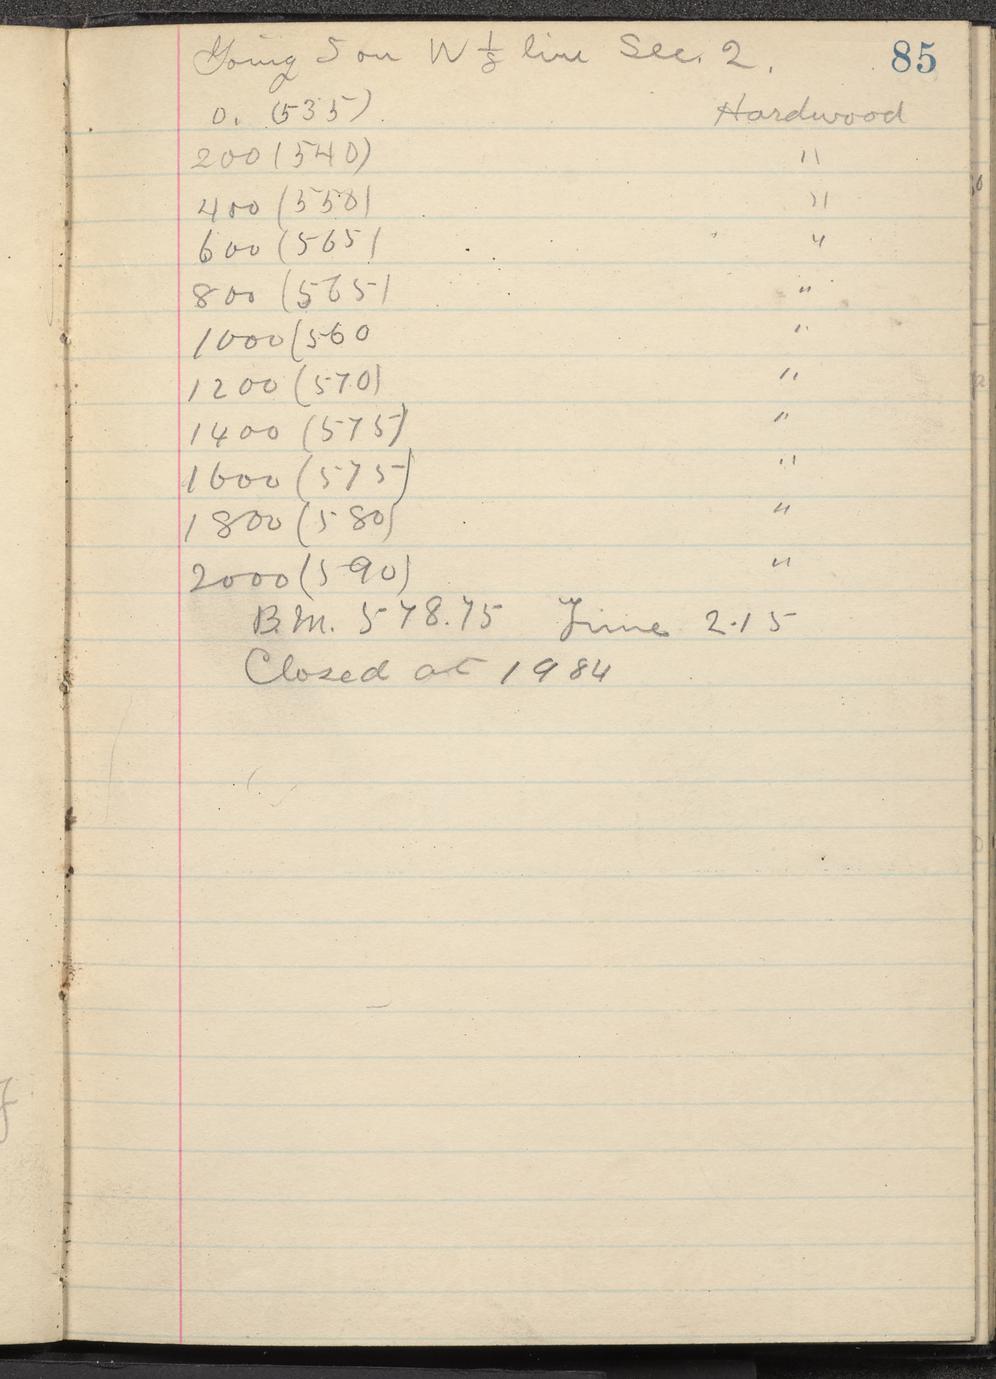 85
Going S on W 1/8 line Sec. 2.
0. (535) Hardwood
200 (540) "
400 (550) "
600 (565) "
800 (565) "
1000 (560 "
1200 (570) "
1400 (575) "
1600 (575) "
1800 (580) "
2000 (590) "
B.M. 578.75 Time 2.15
Closed at 1984